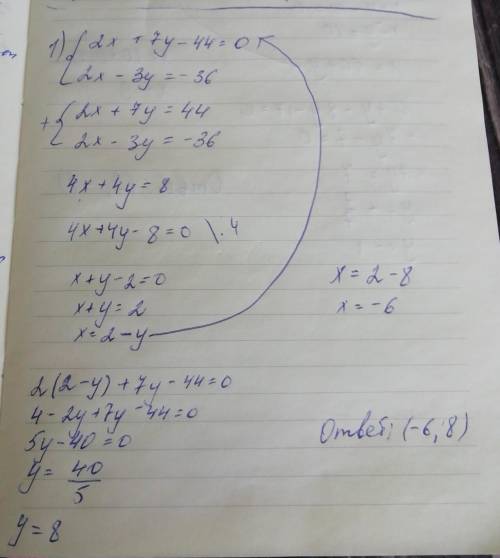 1) { 2x + 7y - 44 = 0
2x - 3y = -36
+ { 2x + 7y = 44
2x - 3y = -36
4x + 4y = 8
4x + 4y - 8 = 0 \ : 4
x + y - 2 = 0
x + y = 2
x = 2 - y
x = 2 - 8
x = -6
2(2 - y) + 7y - 44 = 0
4 - 2y + 7y - 44 = 0
5y - 40 = 0
y = 40/5
y = 8
Ответ: (-6; 8)